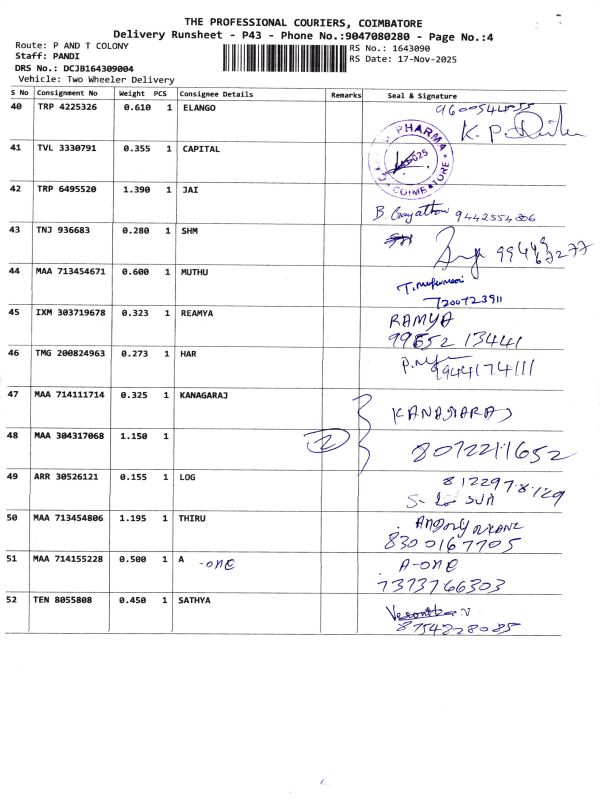 THE PROFESSIONAL COURIERS, COIMBATORE
Delivery Runsheet - P43 - Phone No.:9047080280 - Page No.:4
Route: P AND T COLONY RS No.: 1643090
Staff: PANDI RS Date: 17-Nov-2025
DRS No.: DCJB164309004
Vehicle: Two Wheeler Delivery
S No Consignment No Weight PCS Consignee Details Remarks Seal & Signature
40 TRP 4225326 0.610 1 ELANGO
K. P.
PHARMA
COIMBATORE
41 TVL 3330791 0.355 1 CAPITAL
42 TRP 6495520 1.390 1 JAI
B. Gayathri 9442554806
43 TNJ 936683 0.280 1 SHM
44 MAA 713454671 0.600 1 MUTHU
7200723911
45 IXM 303719678 0.323 1 REAMYA RAMYA
99652 13441
46 TMG 200824963 0.273 1 HAR
9944174111
47 MAA 714111714 0.325 1 KANAGARAJ KANAGARAJ
48 MAA 304317068 1.150 1 2 8072211652
49 ARR 30526121 0.155 1 LOG 8122978129
50 MAA 713454806 1.195 1 THIRU
8300167705
51 MAA 714155228 0.500 1 A -one A-one
7373766303
52 TEN 8055808 0.450 1 SATHYA
8754228085